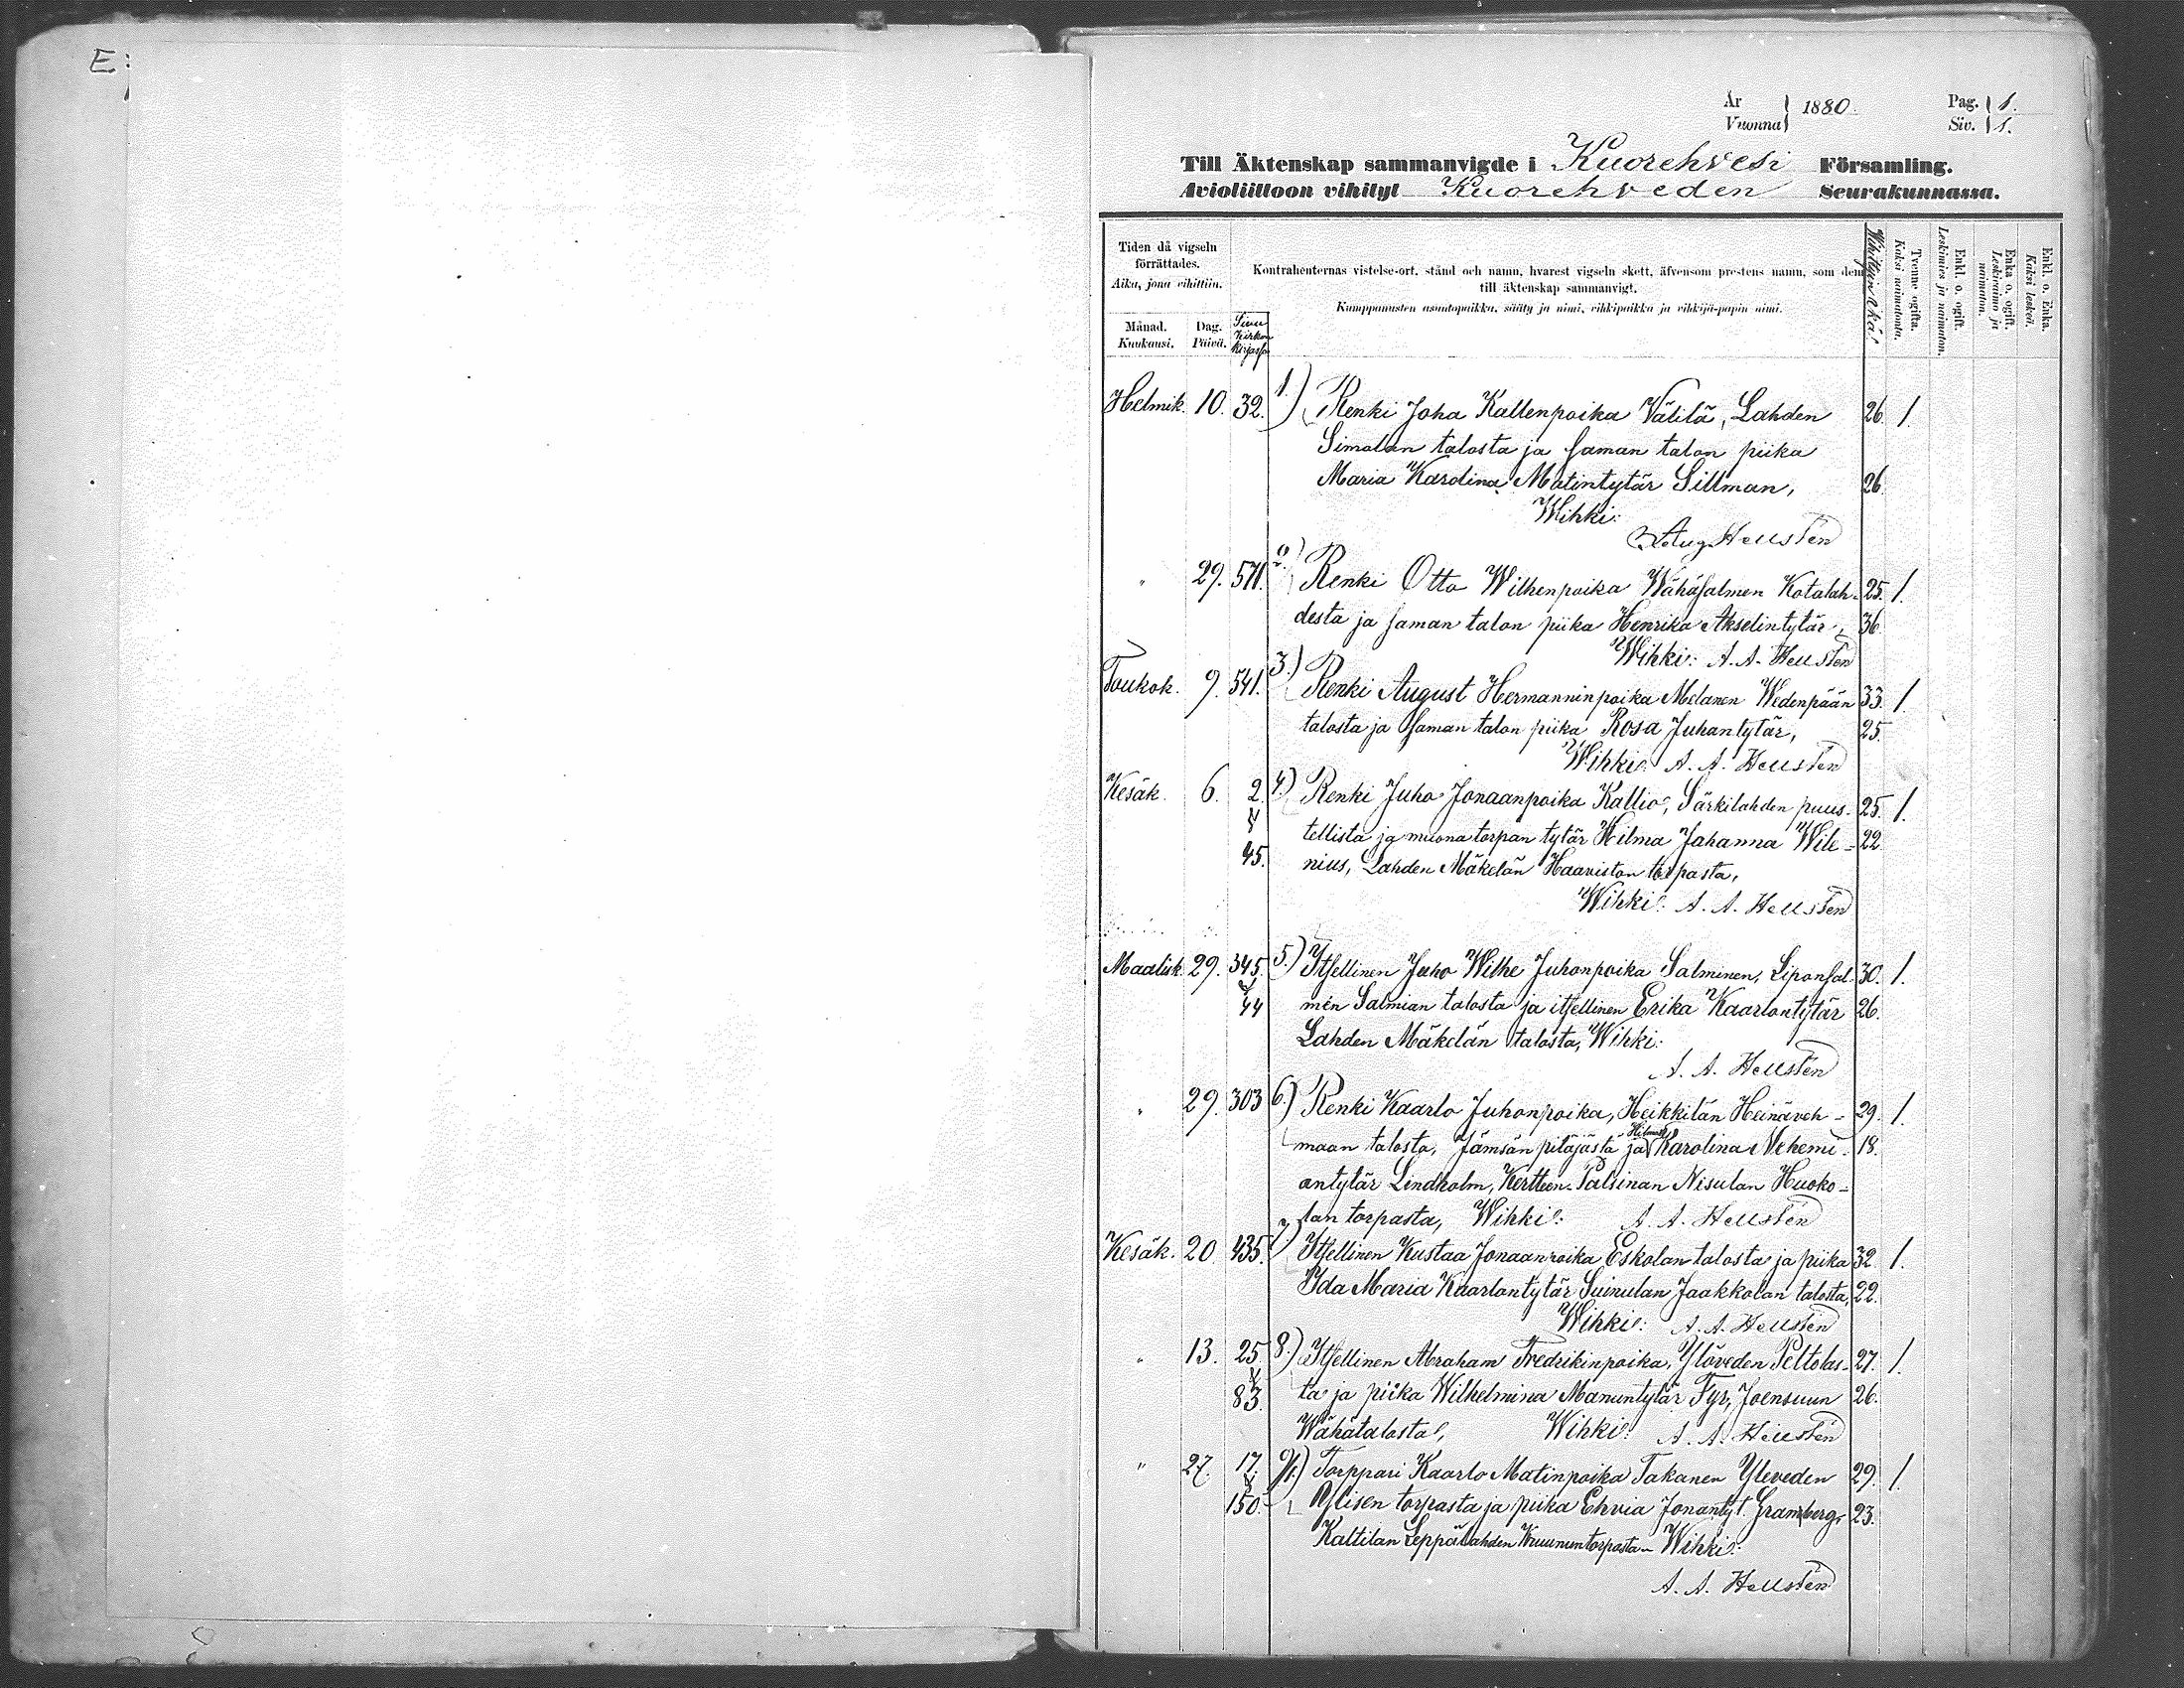 E:
År
Vuonna } 1880.
Pag. } 1.
Siv. } 1.
Till Äktenskap sammanvigde i Kuorehvesi Församling.
Avioliittoon vihityt Kuorehveden Seurakunnassa.
Tiden då vigseln förrättades.
Aika, jona vihittiin.
Månad.
Kuukausi.
Dag.
Päivä.
Sivu Kirkon kirjassa
Kontrahenternas vistelse-ort, stånd och namn, hvarest vigseln skett, äfvensom prestens namn, som dem
till äktenskap sammanvigt.
Kumppanusten asuntopaikka, sääty ja nimi, vihkipaikka ja vihkijä-papin nimi.
Wihittyin ikä.
Tvenne ogifta.
Kaksi naimatonta.
Enkl. o. ogift.
Leskimies ja naimaton.
Enka o. ogift.
Leskivaimo ja naimaton.
Enkl. o. Enka.
Kaksi leskeä.
Helmik. 10. 32. 1.) Renki Joha Kallenpoika Välilä, Lahden 26. 1.
Simolan talosta ja saman talon piika
Maria Karolina Matintytär Sillman, 26.
Wihki:
Aug. Hellsten
" 29. 571. 2.) Renki Otto Wilhenpoika Wähäsalmen Kotalah- 25. 1.
desta ja saman talon piika Henrika Akselintytär, 36
Wihki: A. A. Hellsten
Toukok. 9. 541. 3.) Renki August Hermanninpoika Melanen Wedenpään 33. 1.
talosta ja saman talon piika Rosa Juhantytär, 25.
Wihki: A. A. Hellsten
Kesäk. 6. 2. 4.) Renki Juho Jonaanpoika Kallio, Särkilahden puus- 25. 1.
tellista ja muonatorpan tytär Wilma Johanna Wile- 22.
45. nius, Lahden Mäkelän Haaviston torpasta,
Wihki: A. A. Hellsten
Maalisk. 29. 345. 5.) Itsellinen Juho Wilhe Juhonpoika Salminen, Liponsal- 30. 1.
44 men Salmian talosta ja itsellinen Erika Kaarlontytär 26.
Lahden Mäkelän talosta, Wihki:
A. A. Hellsten
" 29. 303 6.) Renki Kaarlo Juhonpoika, Heikkilän Heinäveh- 29. 1.
maan talosta, Jämsän pitäjästä ja Karolina Nehemi- 18.
antytär Lindholm, Kertteen-Palsinan Nisulan Huoko-
lan torpasta, Wihki: A. A. Hellsten
Kesäk. 20. 435. 7.) Itsellinen Kustaa Jonaanpoika Eskolan talosta ja piika 32. 1.
Ida Maria Kaarlontytär Suinulan Jaakkolan talosta, 22.
Wihki: A. A. Hellsten
" 13. 25. 8.) Itsellinen Abraham Fredrikinpoika, Ylöveden Peltolas- 27. 1.
83. ta ja piika Wilhelmina Manuntytär Fyr, Joensuun 26.
Wähätalosta, Wihki: A. A. Hellsten
" 27. 17. 9.) Torppari Kaarlo Matinpoika Takanen Yleveden 29. 1.
150. Ylisen torpasta ja piika Ehvia Jonantyt. Gramberg, 23.
Kaltilan Leppälahden Kruununtorpasta Wihki:
A. A. Hellsten